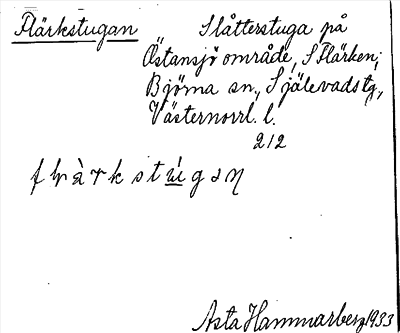 Flärkstugan Slåtterstuga på
Östansjö område, S Flärken;
Björna sn., Själevads tg,
Västernorrl. l.
212
Asta Hammarberg 1933